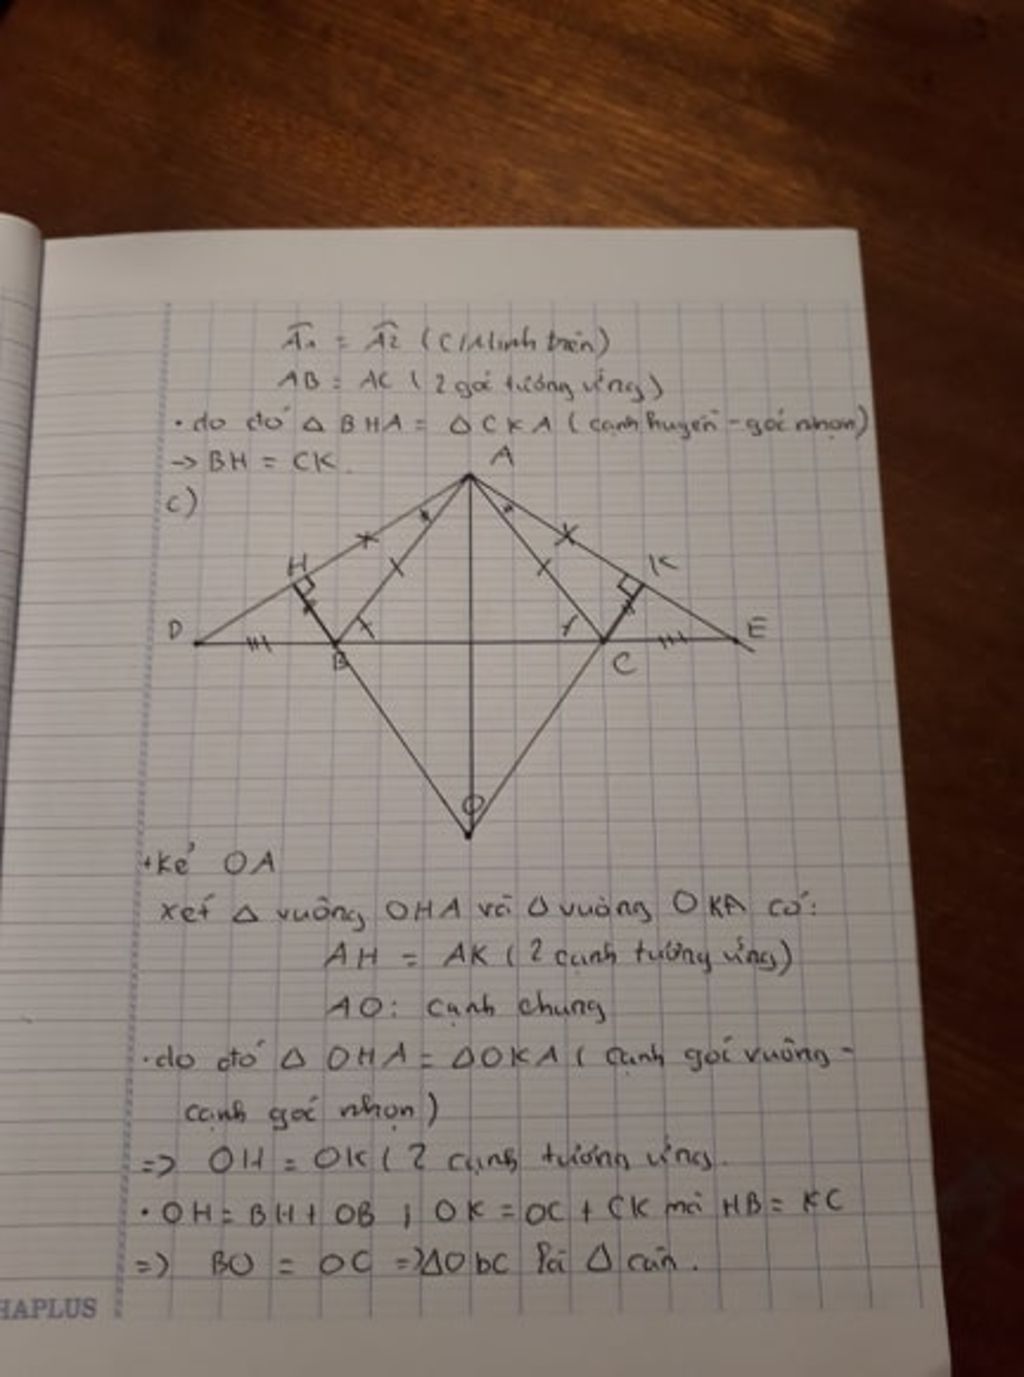 Â₁ = Â₂ (C/Minh trên)
AB = AC (2 góc tương ứng)
· do đó Δ BHA = Δ CKA (cạnh huyền - góc nhọn)
→ BH = CK.
c)
A
H
K
D
E
B
C
O
+ Kẻ OA
xét Δ vuông OHA và Δ vuông OKA có:
AH = AK (2 cạnh tương ứng)
AO: cạnh chung
· do đó Δ OHA = Δ OKA ( cạnh góc vuông -
cạnh góc nhọn)
=> OH = OK ( 2 cạnh tương ứng.
· OH = BH + OB ; OK = OC + CK mà HB = KC
=> BO = OC => Δ ObC là Δ cân.
HAPLUS